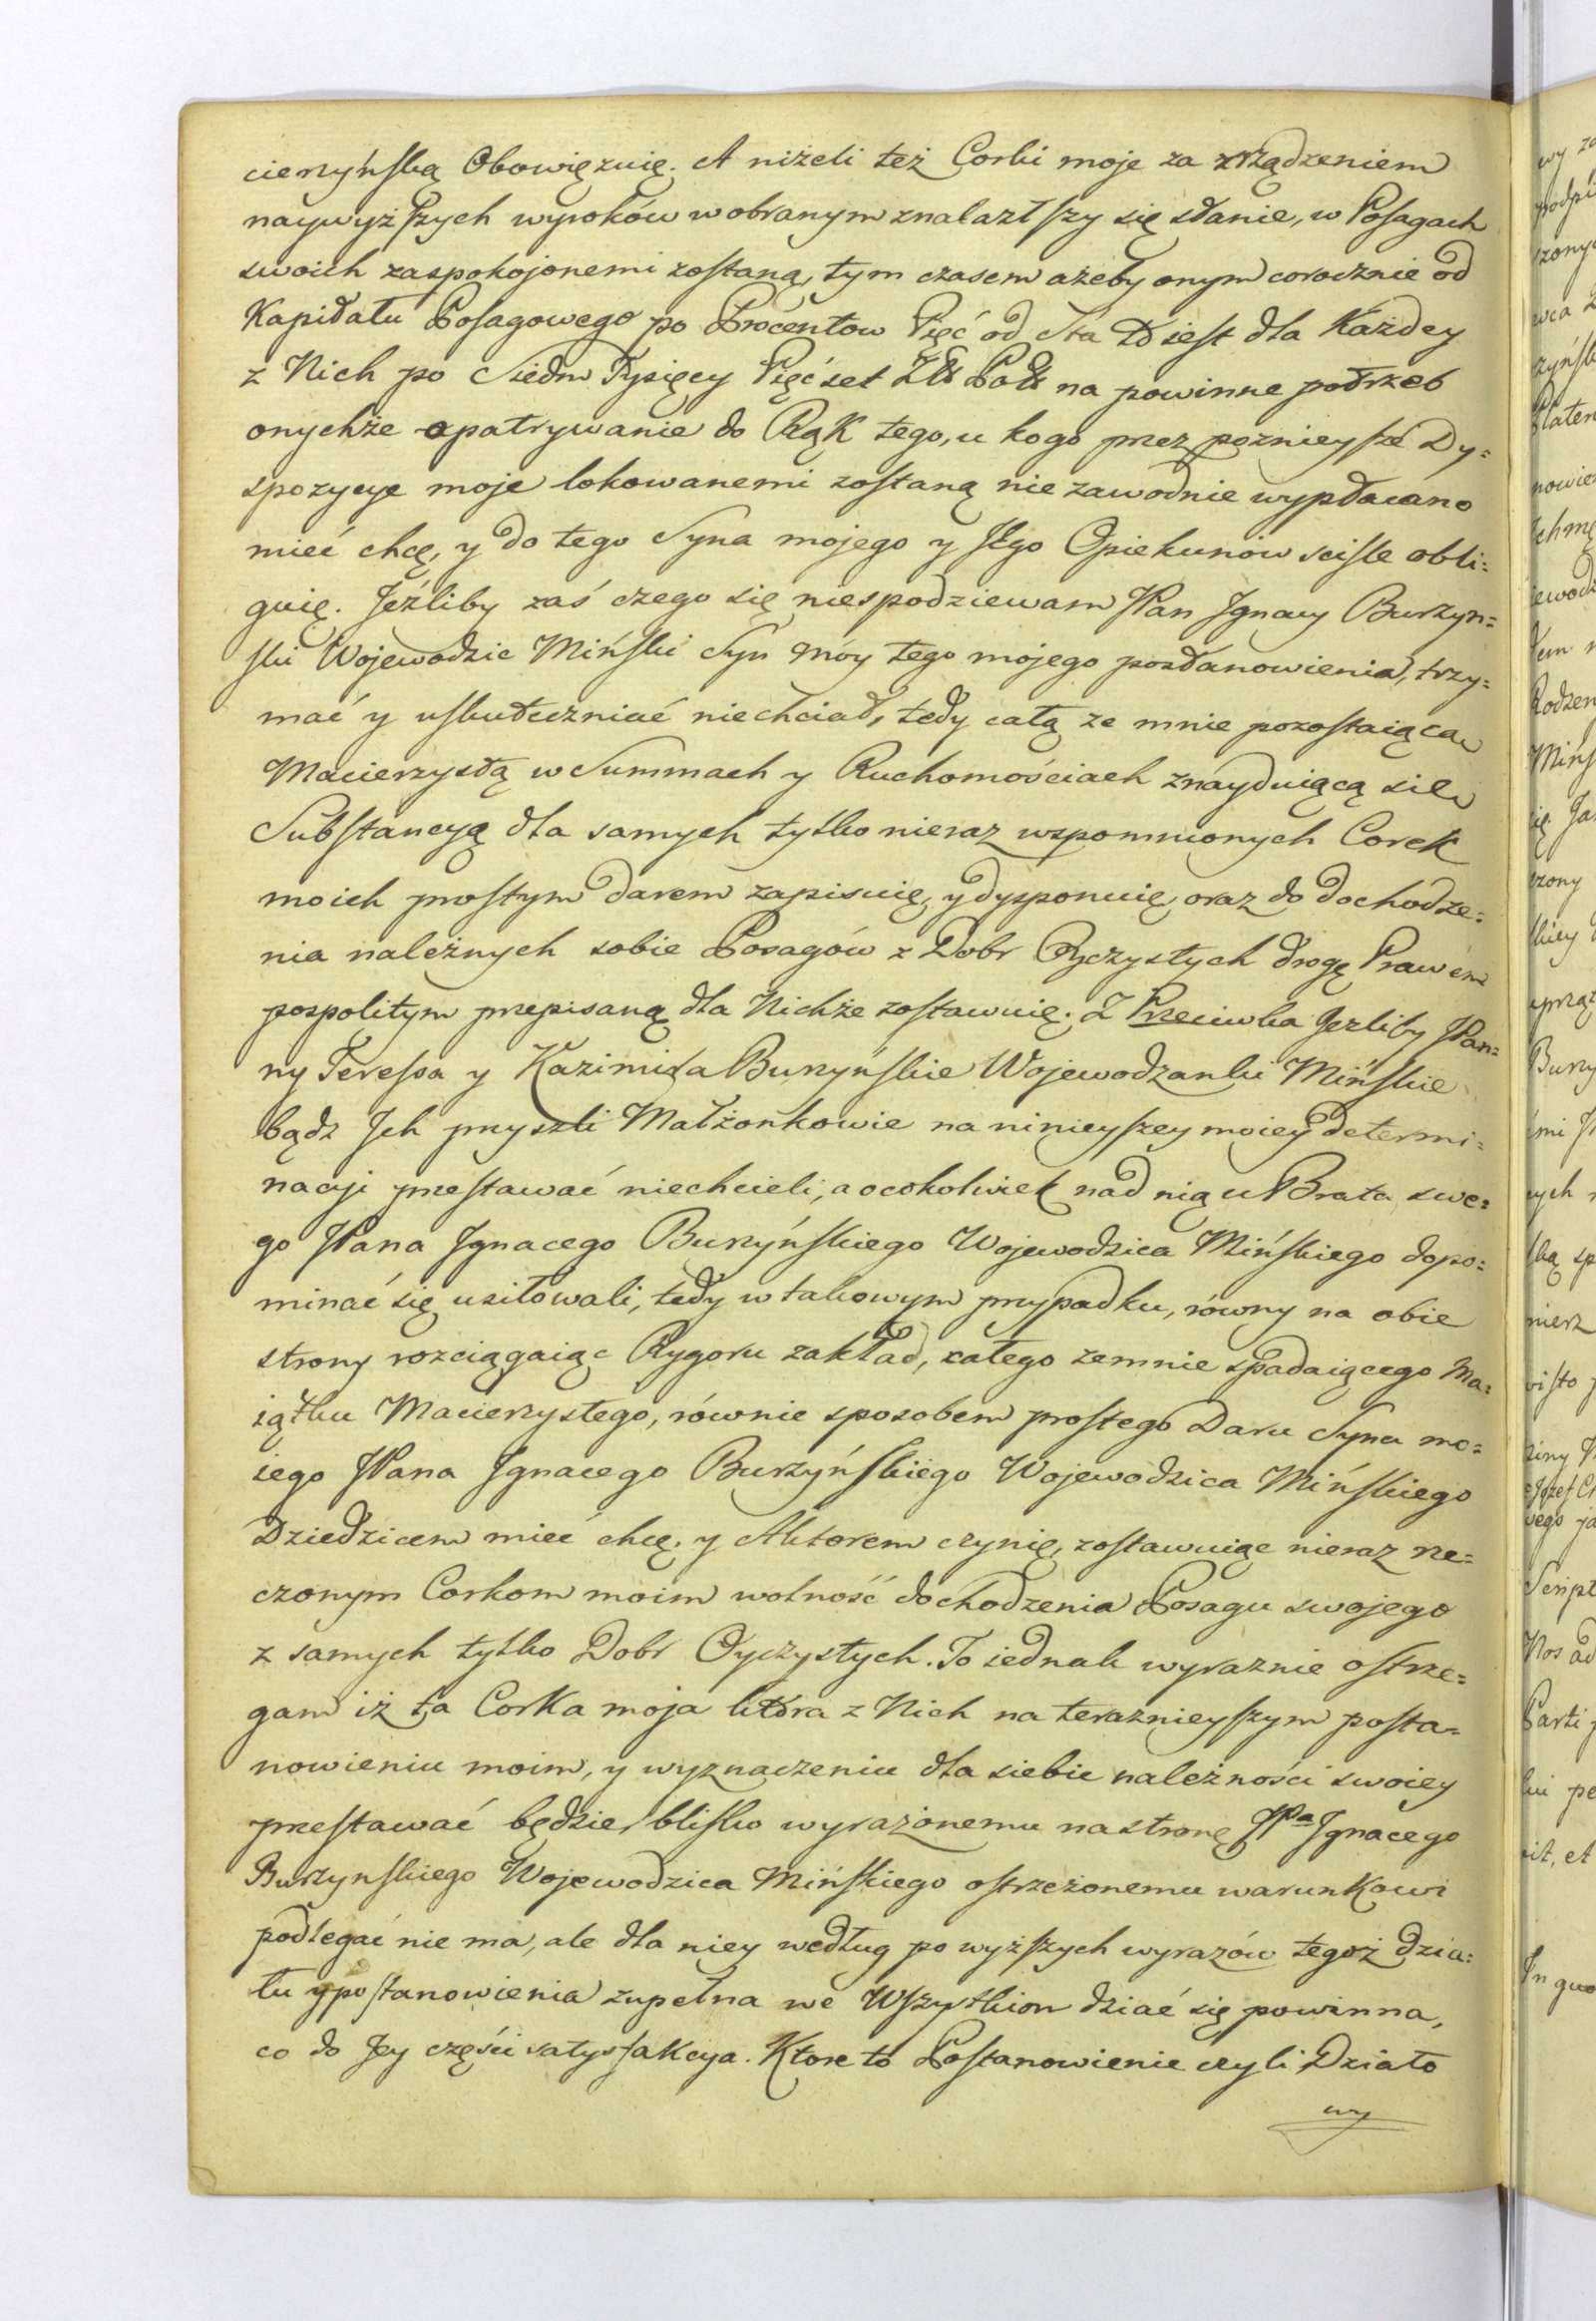 cierzyńską Obowięzuię. A niżeli też Corki moje za zrządzeniem
naywyższych wyroków w obranym znalazłszy się stanie, w Posagach
swoich zaspokojonemi zostaną, tym czasem ażeby onym corocznie od
Kapitału Posagowego po Procentow Pięć od Sta to iest dla Każdey
z Nich po Siedm Tysięcy Pięćset Złł Poll na powinne potrzeb
onychże opatrywanie do Rąk tego, u kogo przez poznieysze Dy=
spozycye moje lokowanemi zostaną niezawodnie wypłacano
mieć chcę, y do tego Syna mojego y Jego Opiekunów sciśle obli=
guię. Jeźliby zaś czego się niespodziewam JPan Jgnacy Burzyn=
ski Wojewodzic Miński Syn móy tego mojego postanowienia, trzy=
mać y uskuteczniać niechciał, tedy całą ze mnie pozostaiąca
Macierzystą w Summach y Ruchomościach znayduiącą się
Substancyą dla samych tylko nieraz wspomnionych Corek
moich prostym darem zapisuię, y dysponuię, oraz do dochodze=
nia należnych sobie Posagów z Dobr Oyczystych drogę Prawem
pospolitym przepisaną dla Nichże zostawuię. Z Przeciwka Jezliby JPan=
ny Teressa y Kazimira Burzyńskie Wojewodzanki Mińskie
bądz Jch przyszli Małżonkowie na ninieyszey moiey determi=
nacyi przestawać niechcieli, a ocokolwiek nad nią u Brata swe=
go JPana Jgnacego Burzyńskiego Wojewodzica Mińskiego dopo=
minać się usiłowali, tedy w takowym przypadku, równy na obie
strony rozciągaiąc Rygoru zakład, całego zemnie spadaiącego Ma=
iątku Macierzystego, równie sposobem prostego Daru Syna mo=
iego JPana Jgnacego Burzyńskiego Wojewodzica Mińskiego
Dziedzicem mieć chcę, y Aktorem czynię, zostawuiąc nieraz rze=
czonym Corkom moim wolność dochodzenia Posagu swojego
z samych tylko Dobr Oyczystych. To iednak wyraznie ostrze=
gam iż ta Corka moja która z Nich na teraznieyszym posta=
nowieniu moim, y wyznaczeniu dla siebie należności swoiey
przestawać będzie, blisko wyrażonemu na stronę JPa Jgnacego
Burzynskiego Wojewodzica Mińskiego ostrzeżonemu warunkowi
podlegać nie ma, ale dla niey według powyższych wyrazów tegoż dzia=
łu y postanowienia zupełna we Wszystkiem dziać się powinna,
co do Jey części satysfakcya. Ktore to Postanowienie czyli Działo
wy